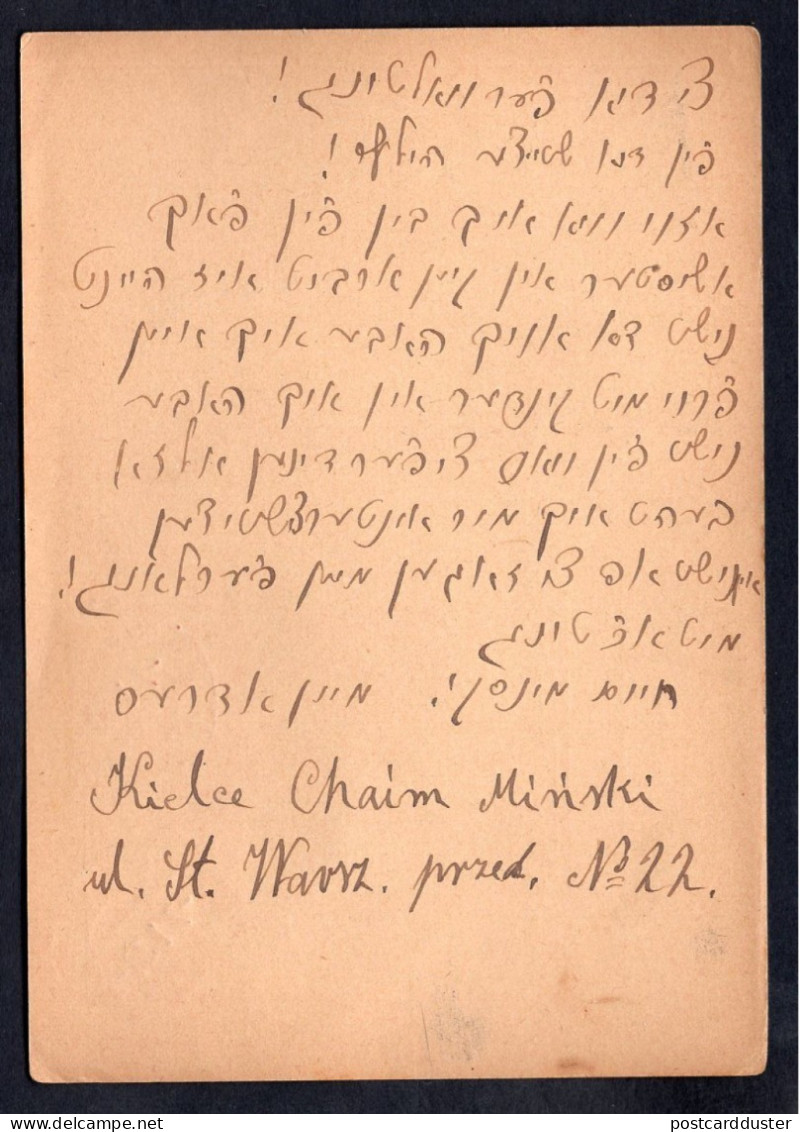 צו דיא פֿערוואלטונג!
פֿין דנא שטייצע הילף!
אזוי וויא איך בין פֿין פֿאך
אשיסטער אין קיין ארבייט איז היינט
נישט דא אויך האבע איך איין
פֿרוי מיט קינדער אין איך האבע
נישט פֿין וואס צי פֿערדינען אלזא
בעהט איך מיר אונטערצושטיצען
אין נישט אפ צו זאגען מיין פֿערלאנג!
מיט אכֿטונג
חיים מינסקי. מיין אדרעס
Kielce Chaim Miński
ul. St. Warsz. przed. № 22.
postcardduster
delcampe.net